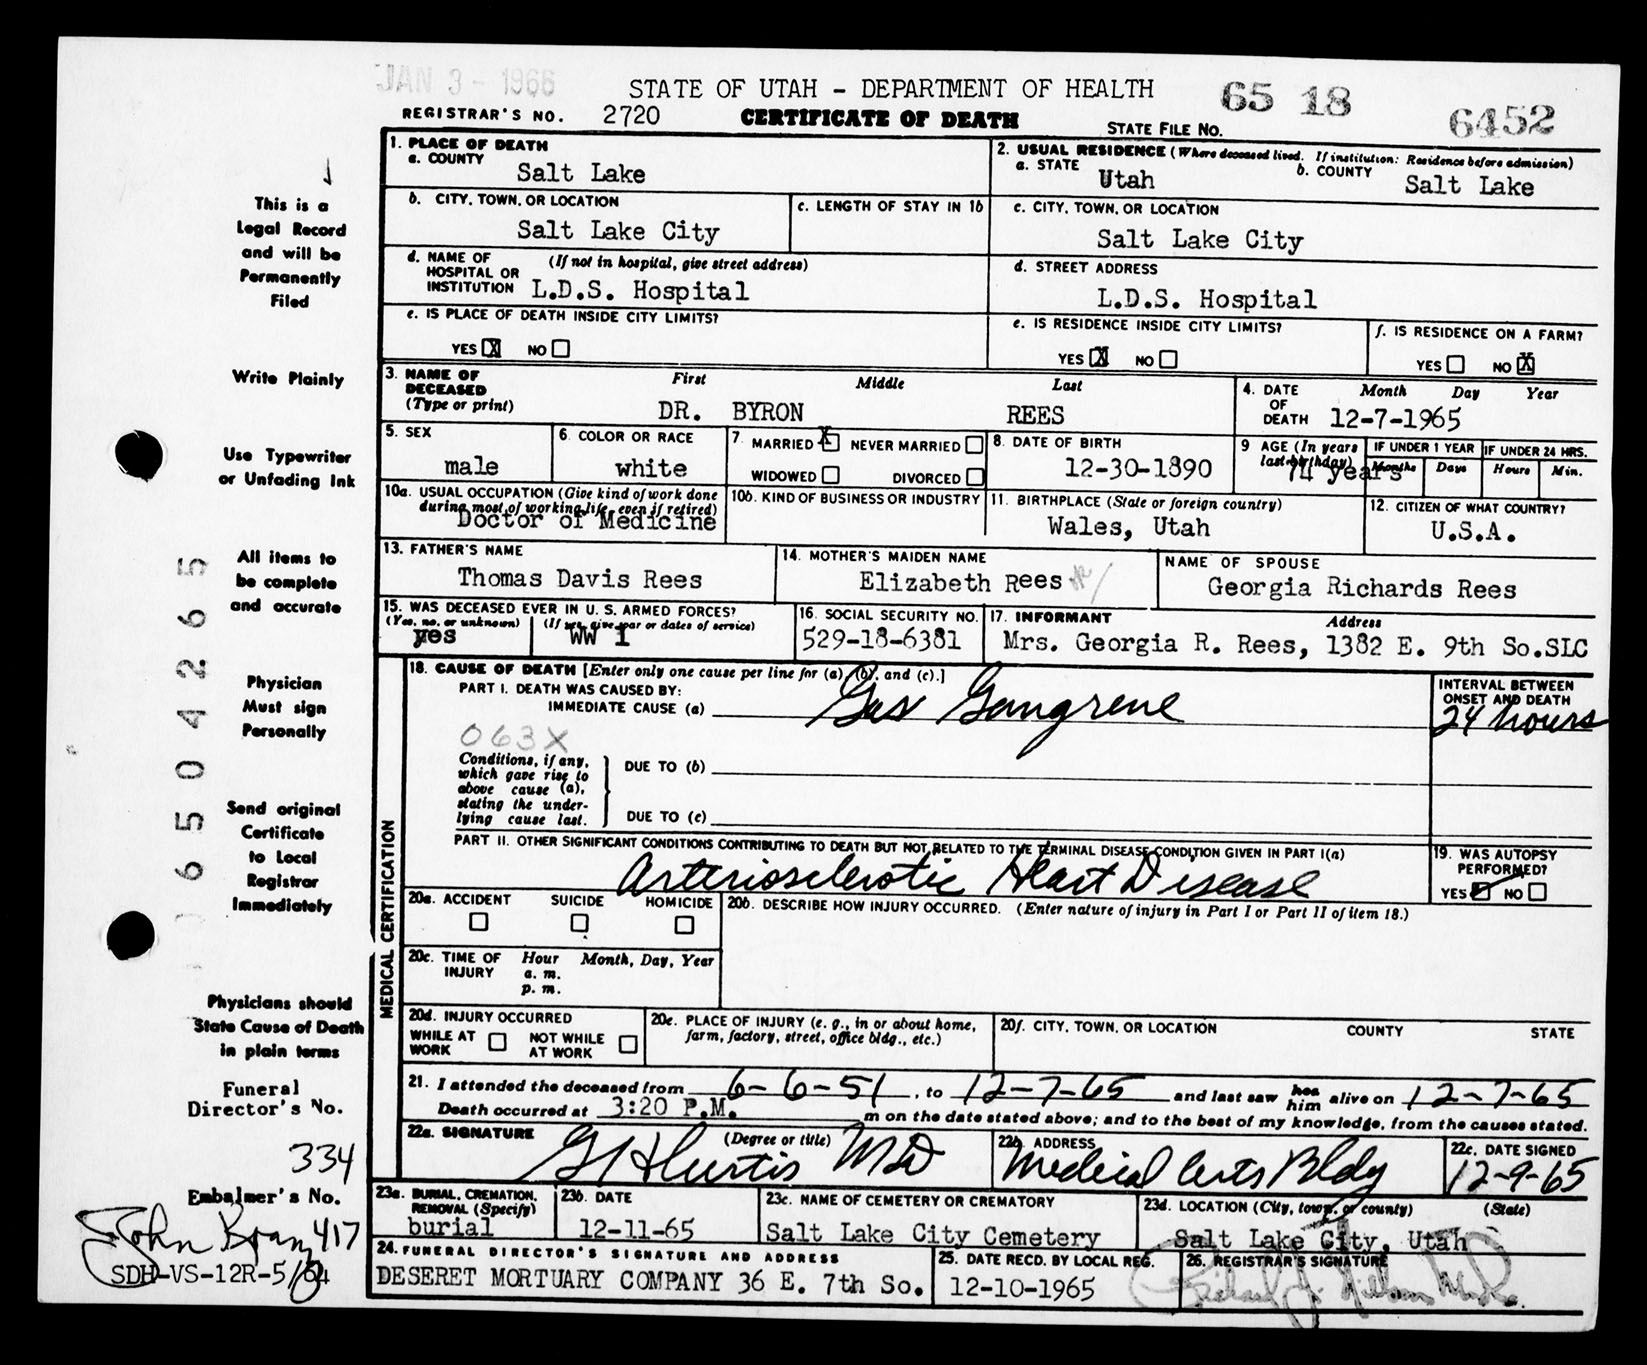 JAN 3 - 1966
STATE OF UTAH - DEPARTMENT OF HEALTH
65 18 6452
REGISTRAR'S NO. 2720 CERTIFICATE OF DEATH STATE FILE NO.
This is a
Legal Record
and will be
Permanently
Filed
Write Plainly
Use Typewriter
or Unfading Ink
All items to
be complete
and accurate
Physician
Must sign
Personally
Send original
Certificate
to Local
Registrar
Immediately
Physicians should
State Cause of Death
in plain terms
Funeral
Director's No.
334
Embalmer's No.
John 417
SDH-VS-12R-5/64
0 6 5 0 4 2 6 5
1. PLACE OF DEATH
a. COUNTY Salt Lake
2. USUAL RESIDENCE (Where deceased lived. If institution: Residence before admission)
a. STATE Utah b. COUNTY Salt Lake
b. CITY, TOWN, OR LOCATION Salt Lake City
c. LENGTH OF STAY IN 1b
c. CITY, TOWN, OR LOCATION Salt Lake City
d. NAME OF HOSPITAL OR INSTITUTION (If not in hospital, give street address) L.D.S. Hospital
d. STREET ADDRESS L.D.S. Hospital
e. IS PLACE OF DEATH INSIDE CITY LIMITS?
YES X NO
e. IS RESIDENCE INSIDE CITY LIMITS?
YES X NO
f. IS RESIDENCE ON A FARM?
YES NO X
3. NAME OF DECEASED (Type or print) First Middle Last
DR. BYRON REES
4. DATE OF DEATH Month Day Year
12-7-1965
5. SEX male
6. COLOR OR RACE white
7. MARRIED X NEVER MARRIED
WIDOWED DIVORCED
8. DATE OF BIRTH 12-30-1890
9 AGE (In years last birthday) 74 years
IF UNDER 1 YEAR Months Days
IF UNDER 24 HRS. Hours Min.
10a. USUAL OCCUPATION (Give kind of work done during most of working life, even if retired)
Doctor of Medicine
10b. KIND OF BUSINESS OR INDUSTRY
11. BIRTHPLACE (State or foreign country)
Wales, Utah
12. CITIZEN OF WHAT COUNTRY?
U.S.A.
13. FATHER'S NAME
Thomas Davis Rees
14. MOTHER'S MAIDEN NAME
Elizabeth Rees
NAME OF SPOUSE
Georgia Richards Rees
15. WAS DECEASED EVER IN U. S. ARMED FORCES?
(Yes, no, or unknown) (If yes, give war or dates of service)
yes WW 1
16. SOCIAL SECURITY NO.
529-18-6381
17. INFORMANT Address
Mrs. Georgia R. Rees, 1382 E. 9th So.SLC
MEDICAL CERTIFICATION
18. CAUSE OF DEATH [Enter only one cause per line for (a), (b), and (c).]
PART I. DEATH WAS CAUSED BY:
IMMEDIATE CAUSE (a) Gas Gangrene
INTERVAL BETWEEN ONSET AND DEATH
24 hours
063X
Conditions, if any, which gave rise to above cause (a), stating the under-lying cause last.
DUE TO (b)
DUE TO (c)
PART II. OTHER SIGNIFICANT CONDITIONS CONTRIBUTING TO DEATH BUT NOT RELATED TO THE TERMINAL DISEASE CONDITION GIVEN IN PART I(a)
Arteriosclerotic Heart Disease
19. WAS AUTOPSY PERFORMED?
YES NO
20a. ACCIDENT SUICIDE HOMICIDE
20b. DESCRIBE HOW INJURY OCCURRED. (Enter nature of injury in Part I or Part II of item 18.)
20c. TIME OF INJURY Hour Month, Day, Year
a. m.
p. m.
20d. INJURY OCCURRED
WHILE AT WORK NOT WHILE AT WORK
20e. PLACE OF INJURY (e. g., in or about home, farm, factory, street, office bldg., etc.)
20f. CITY, TOWN, OR LOCATION COUNTY STATE
21. I attended the deceased from 6-6-51, to 12-7-65 and last saw her him alive on 12-7-65
Death occurred at 3:20 P.M. m on the date stated above; and to the best of my knowledge, from the causes stated.
22a. SIGNATURE (Degree or title) MD
22b ADDRESS Medical Arts Bldg
22c. DATE SIGNED 12-9-65
23a. BURIAL, CREMATION, REMOVAL (Specify)
burial
23b. DATE
12-11-65
23c. NAME OF CEMETERY OR CREMATORY
Salt Lake City Cemetery
23d. LOCATION (City, town, or county) (State)
Salt Lake City, Utah
24. FUNERAL DIRECTOR'S SIGNATURE AND ADDRESS
DESERET MORTUARY COMPANY 36 E. 7th So.
25. DATE RECD. BY LOCAL REG.
12-10-1965
26. REGISTRAR'S SIGNATURE